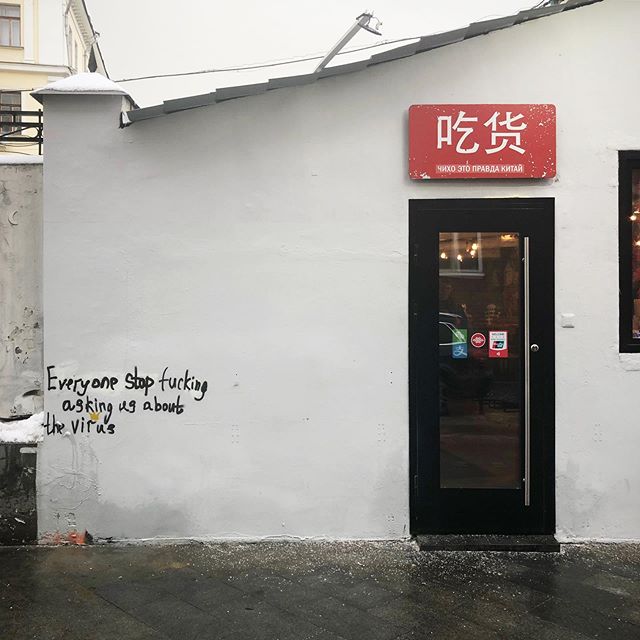 吃货
ЧИХО ЭТО ПРАВДА КИТАЙ
Everyone stop fucking
asking us about
the virus